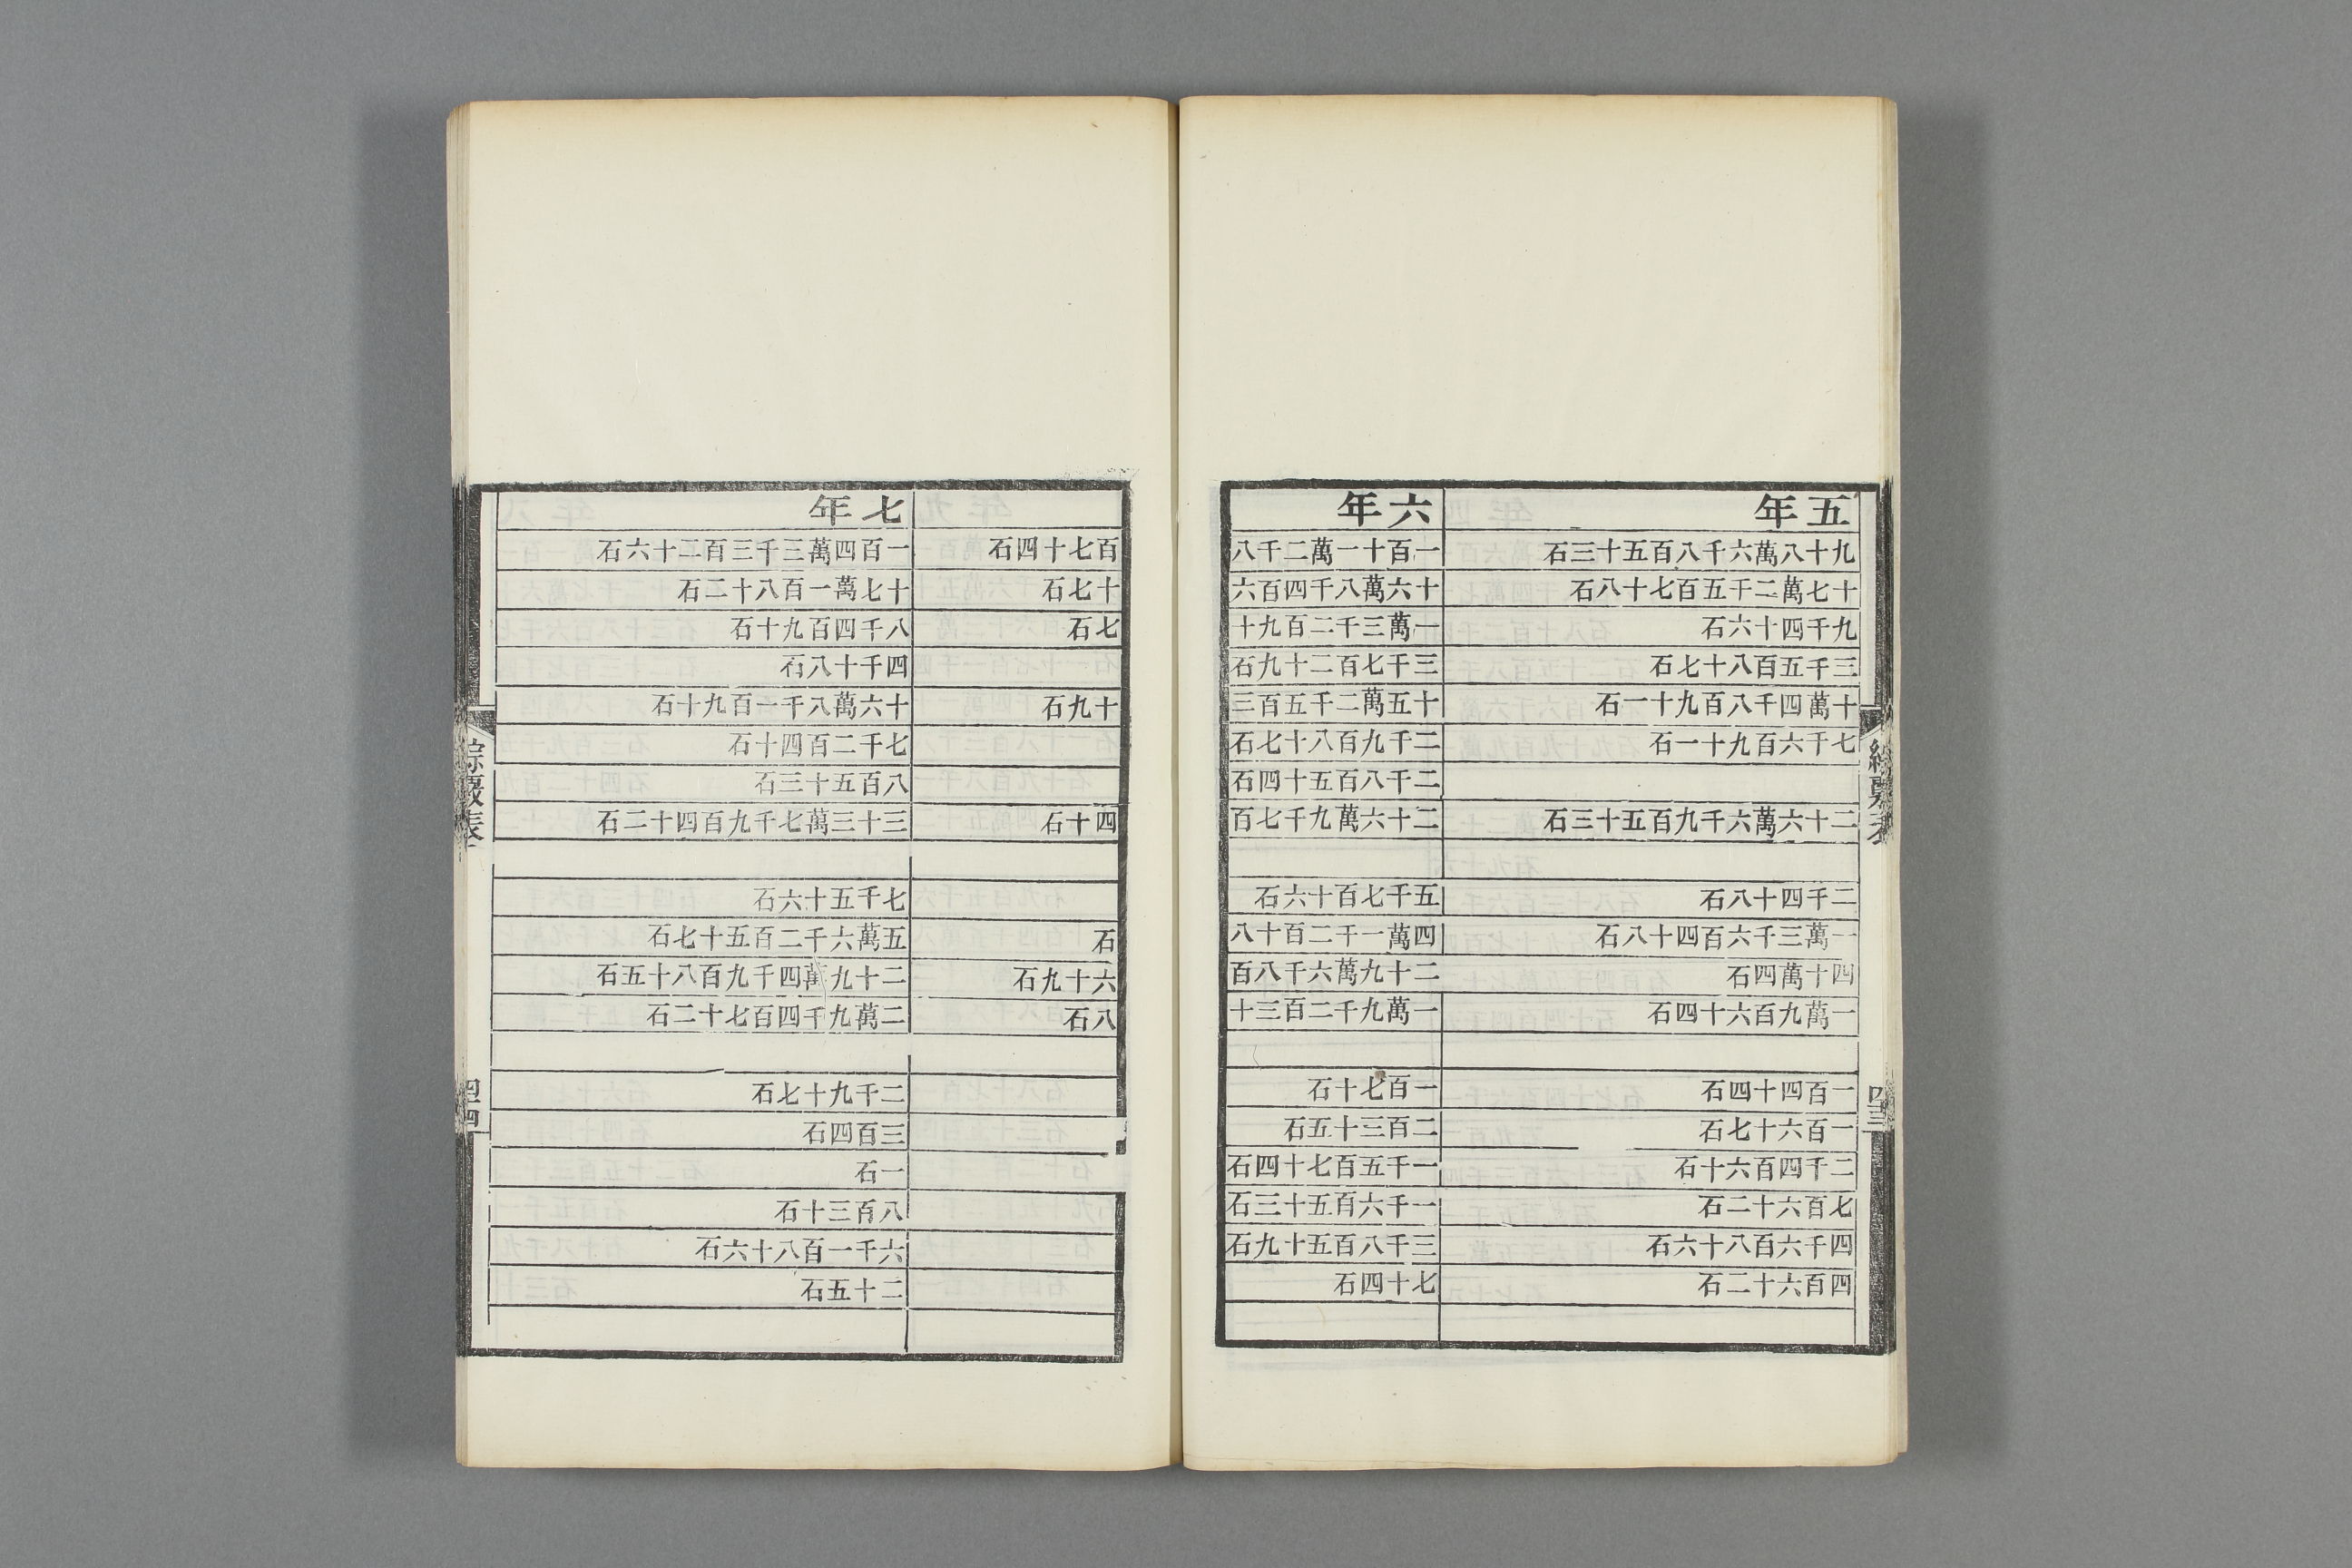 五年
九十八萬六千八百五十三石
十七萬二千五百七十八石
九千四十六石
三千五百八十七石
十萬四千八百九十一石
七千六百九十一石
二十六萬六千九百五十三石
二千四十八石
一萬三千六百四十八石
四十萬四石
一萬九百六十四石
一百四十四石
一百六十七石
二千四百六十石
七百六十二石
四千六百八十六石
四百六十二石
六年
一百十一萬二千八
十六萬八千四百六
一萬三千二百九十
三千七百二十九石
十五萬二千五百三
二千九百八十七石
二千八百五十四石
二十六萬九千七百
五千七百十六石
四萬一千二百十八
二十九萬六千八百
一萬九千二百三十
一百七十石
二百三十五石
一千五百七十四石
一千六百五十三石
三千八百五十九石
七十四石
綜覈表
四三
百七十四石
十七石
七石
十九石
四十石
石
六十九石
八石
七年
一百四萬三千三百二十六石
十七萬一百八十二石
八千四百九十石
四千十八石
十六萬八千一百九十石
七千二百四十石
八百五十三石
三十三萬七千九百四十二石
七千五十六石
五萬六千二百五十七石
二十九萬四千九百八十五石
二萬九千四百七十二石
二千九十七石
三百四石
一石
八百三十石
六千一百八十六石
二十五石
綜覈表
四四